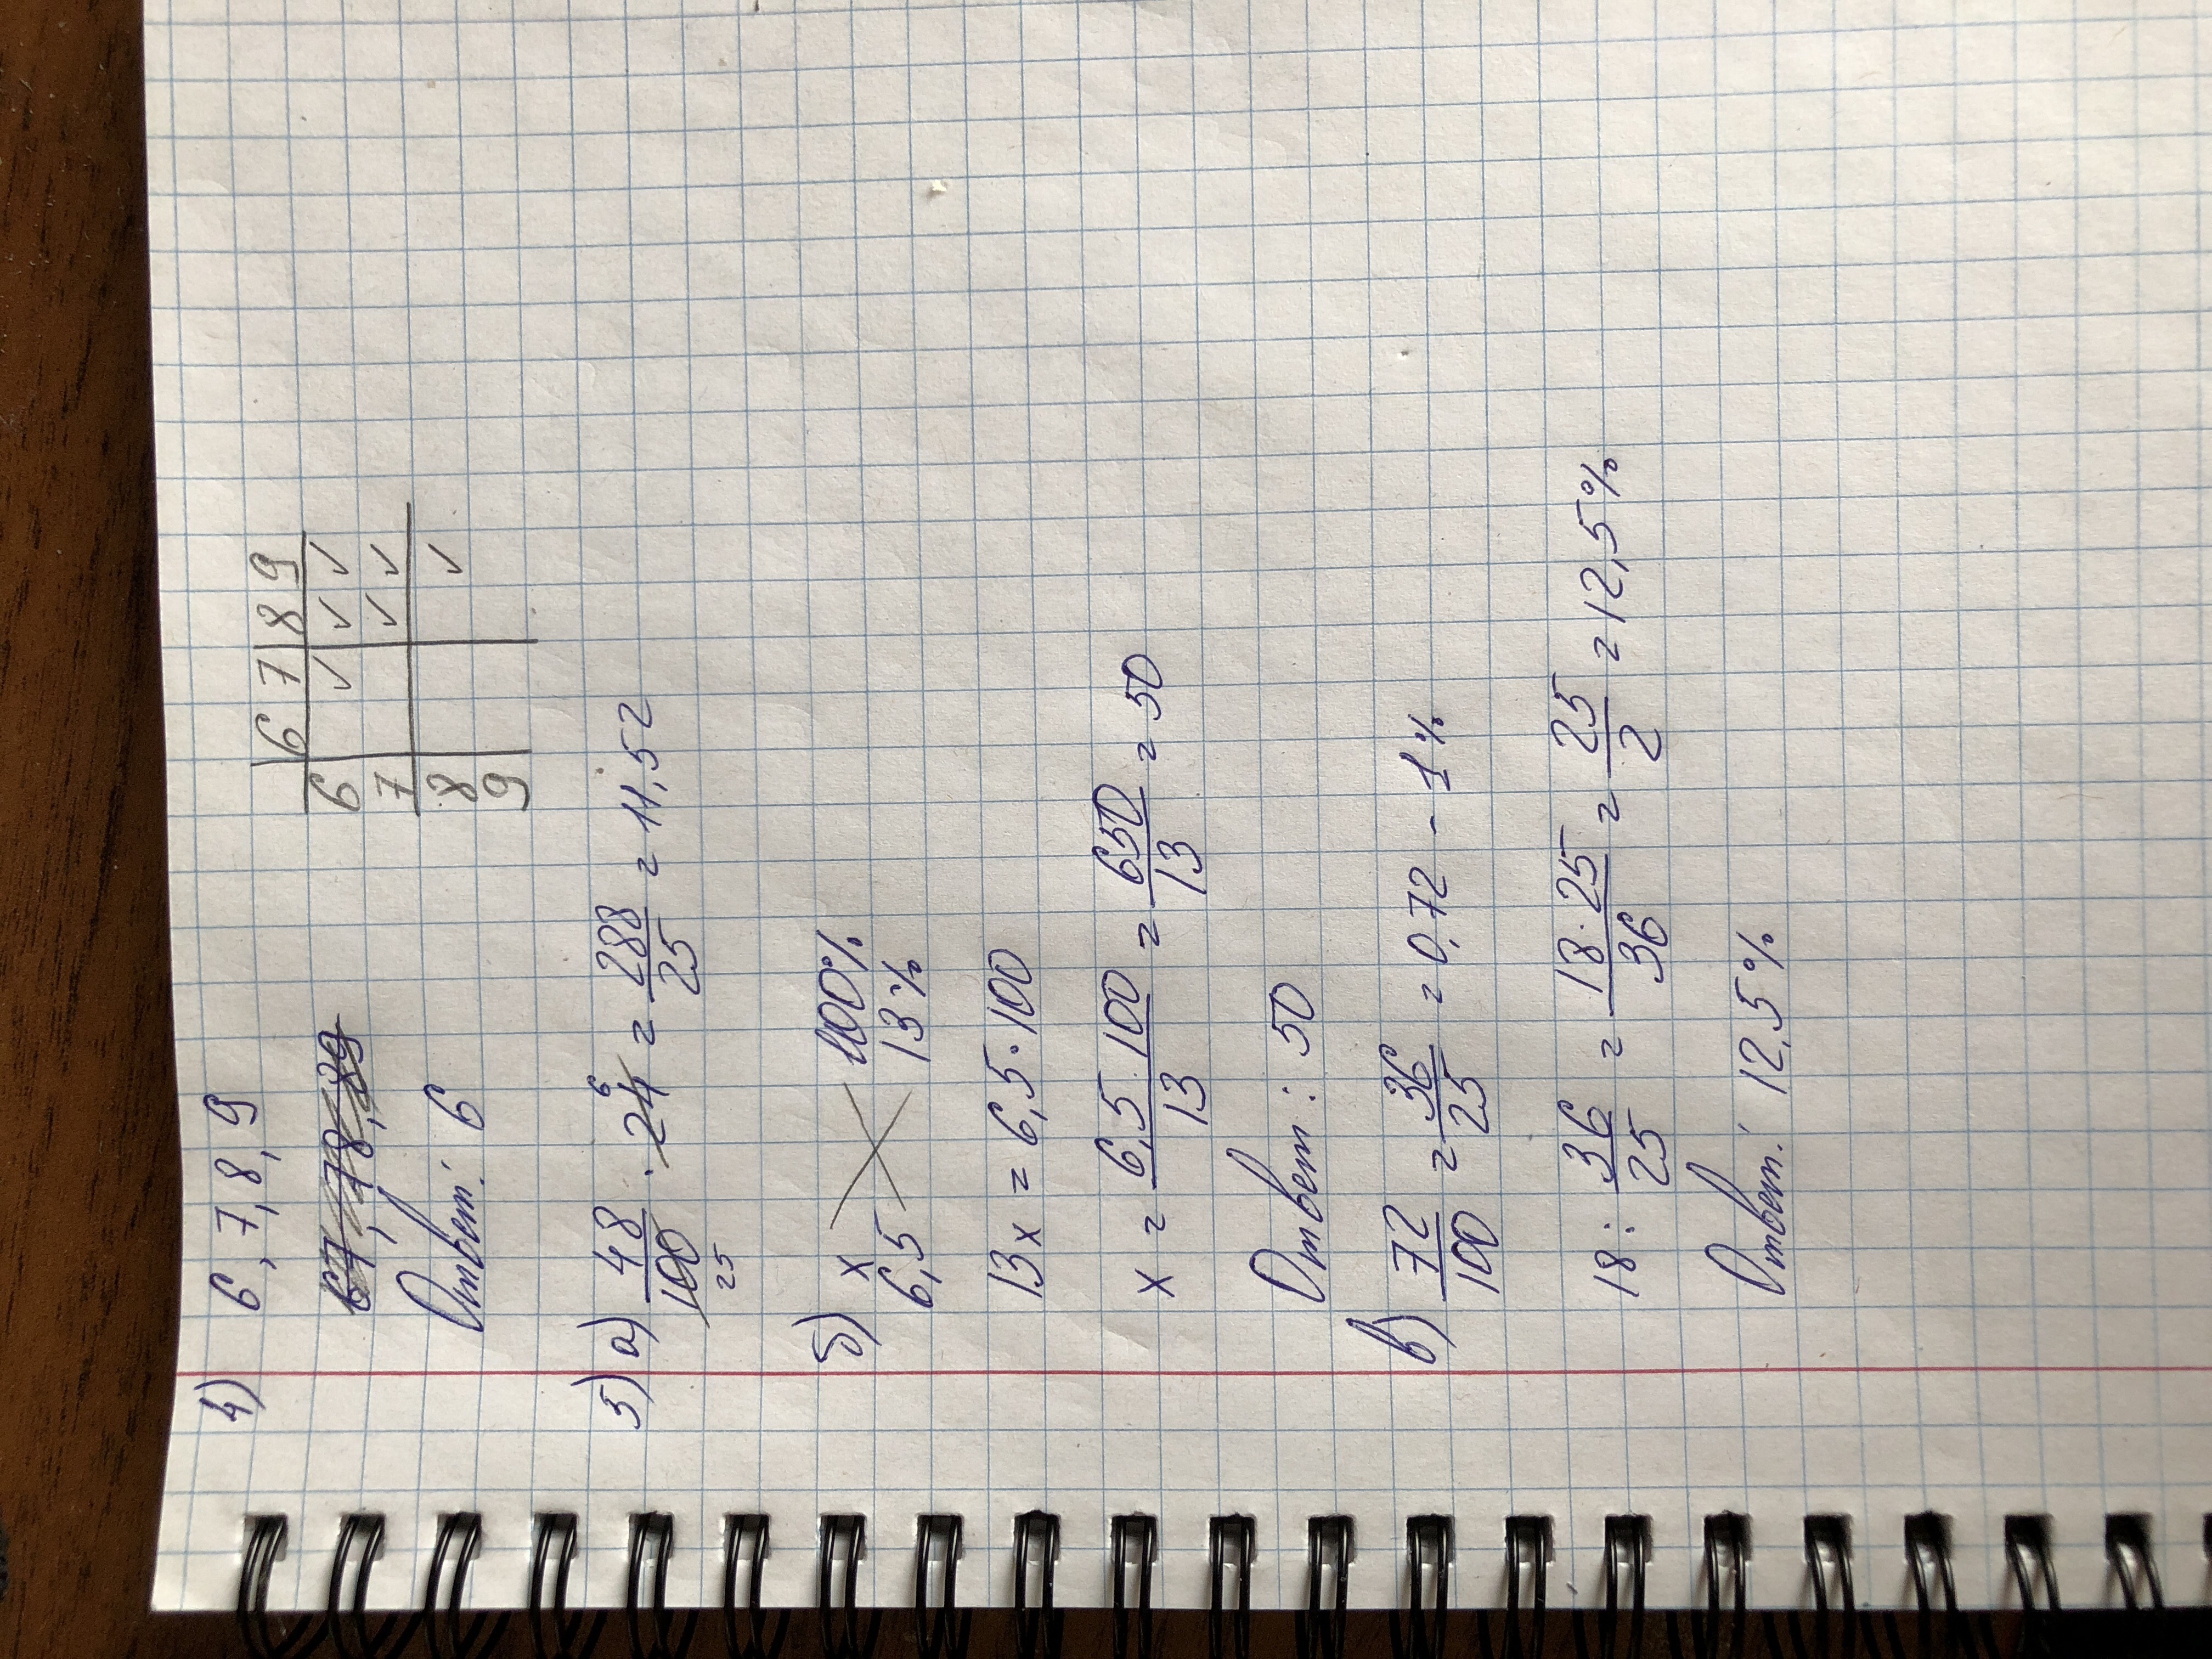 4) 6, 7, 8, 9
67, 78, 89
Ответ: 6
6 7 8 9
6 ✓ ✓ ✓
7 ✓ ✓
8 ✓
9
5) а) 48/100 · 24 = 288/25 = 11,52
25 6
б) x 100%
6,5 13%
13x = 6,5 · 100
x = 6,5 · 100/13 = 650/13 = 50
Ответ: 50
в) 72/100 = 36/25 = 0,72 - 1%
18 : 36/25 = 18 · 25/36 = 25/2 = 12,5%
Ответ: 12,5%